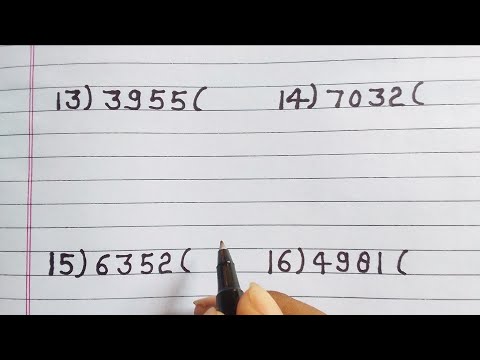 13) 3955 ( 14) 7032 (
15) 6352 ( 16) 4981 (